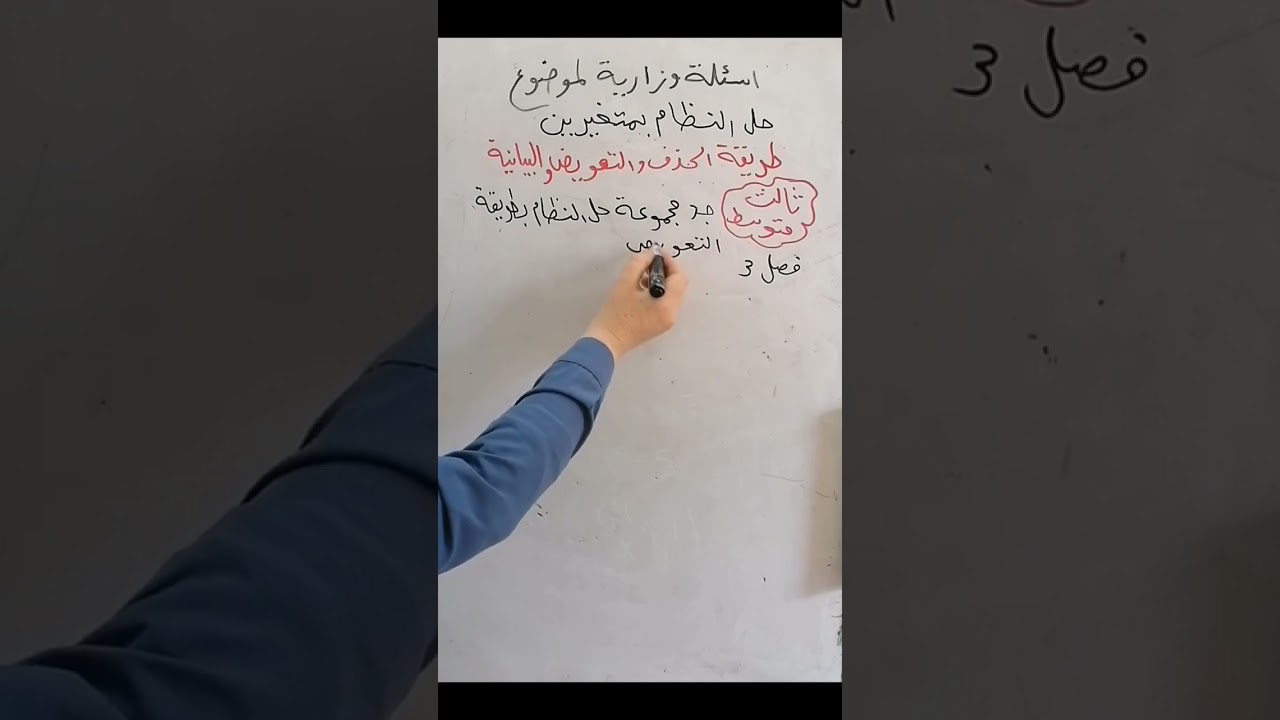 اسئلة وزارية لموضوع
حل النظام بمتغيرين
طريقة الحذف والتعويض والبيانية
ثالث متوسط
جد مجموعة حل النظام بطريقة
التعويض
فصل 3
فصل 3